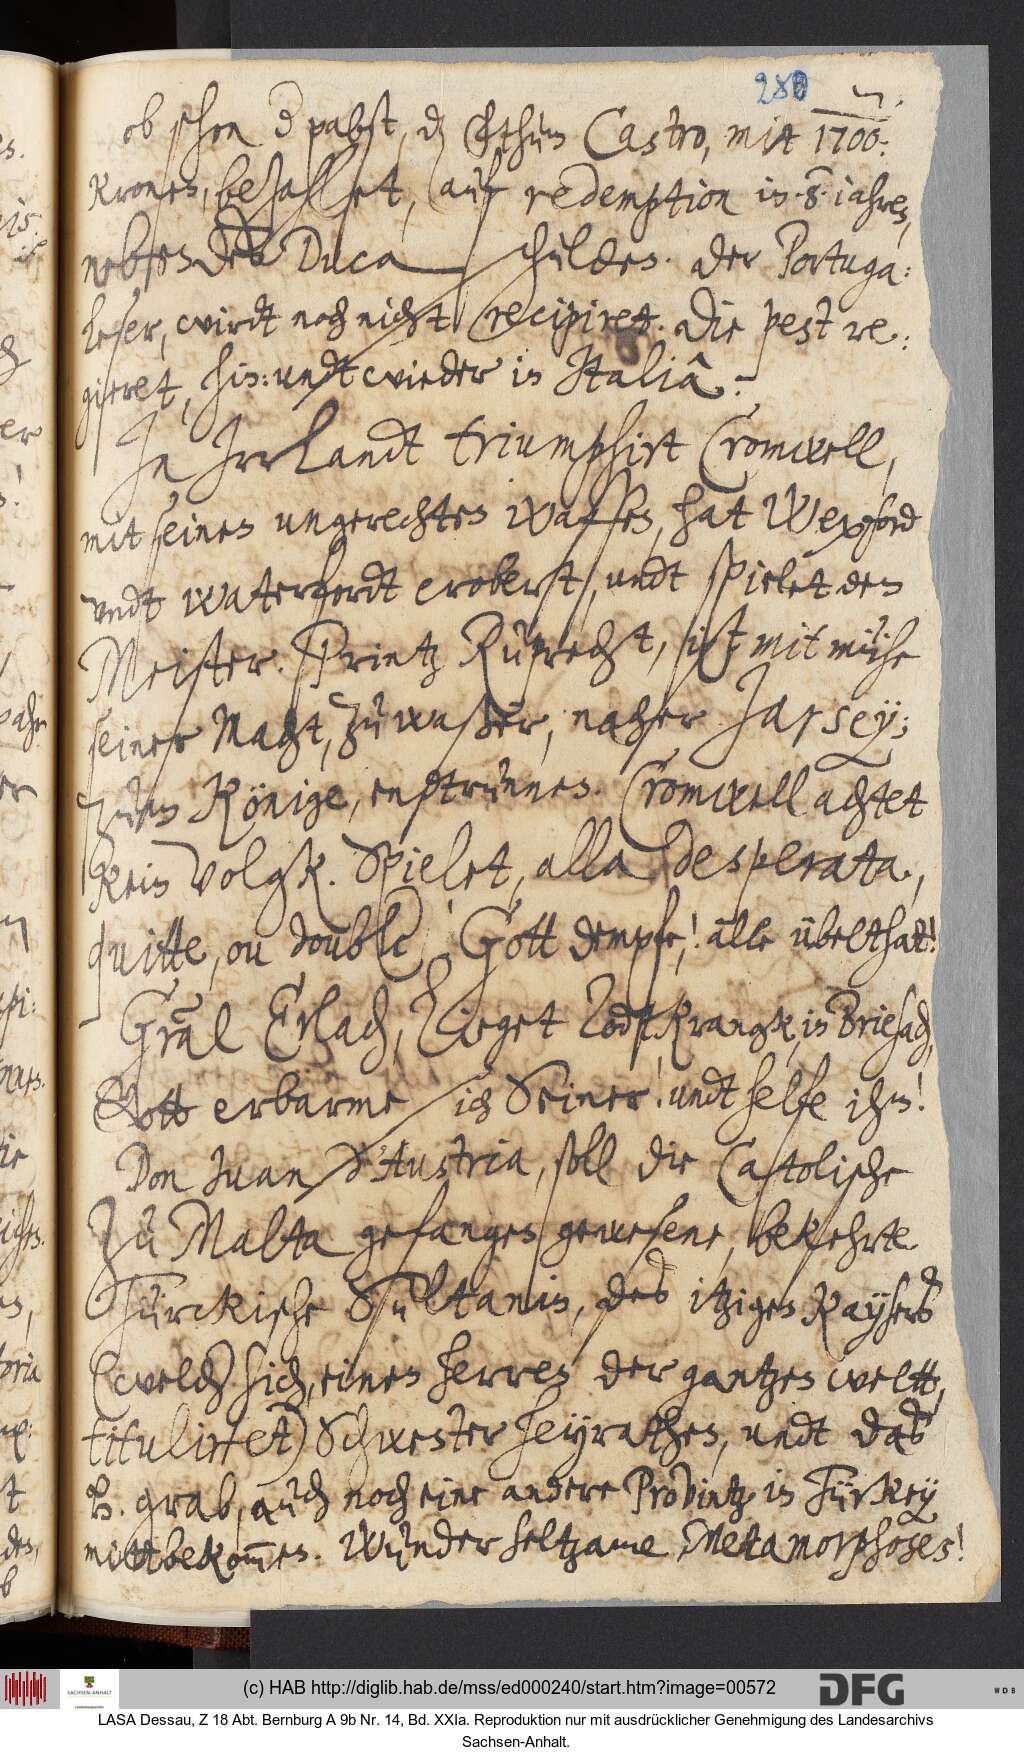 280
ob schon der pabst, dz Hzthum Castro, mit 1700.
Kronen, behafftet, auf redemption in 8 iahren,
nebenst des Duca schulden. Der Portuga:
leser, wirdt noch nicht recipiret. Die pest re:
gieret, hin: undt wieder in Italiâ.
In Irrlandt triumphirt Cromwell,
mit seinen ungerechten waffen, hat Wexford
undt waterfordt erobert, undt spielet den
Meister. Printz Ruprecht, ist mit mühe
seiner Macht, zu waßer, naher Jarsey;
zum Könige, entrunnen. Cromwell achtet
kein Volgk. Spielet, alla desperata,
quitte, ou double! Gott dempfe! alle übelthat!
Gral Erlach, lieget Todtkrangk, in Briesach,
Gott erbarme sich Seiner! undt helfe ihm!
Don Juan d'Austria, soll die Catolische
zu Malta gefangen gewesene, bekehrte
Türckische Sultanin, des itzigen Kaysers
(welcher sich, einen herren der gantzen weltt,
titulirtet) Schwester heyrathen, undt das
h. grab, auch noch eine andere Provintz in Türkey
mittbekommen. Wunder seltzame Metamorphoses!
(c) HAB http://diglib.hab.de/mss/ed000240/start.htm?image=00572
SACHSEN-ANHALT
DFG
WDB
LASA Dessau, Z 18 Abt. Bernburg A 9b Nr. 14, Bd. XXIa. Reproduktion nur mit ausdrücklicher Genehmigung des Landesarchivs
Sachsen-Anhalt.